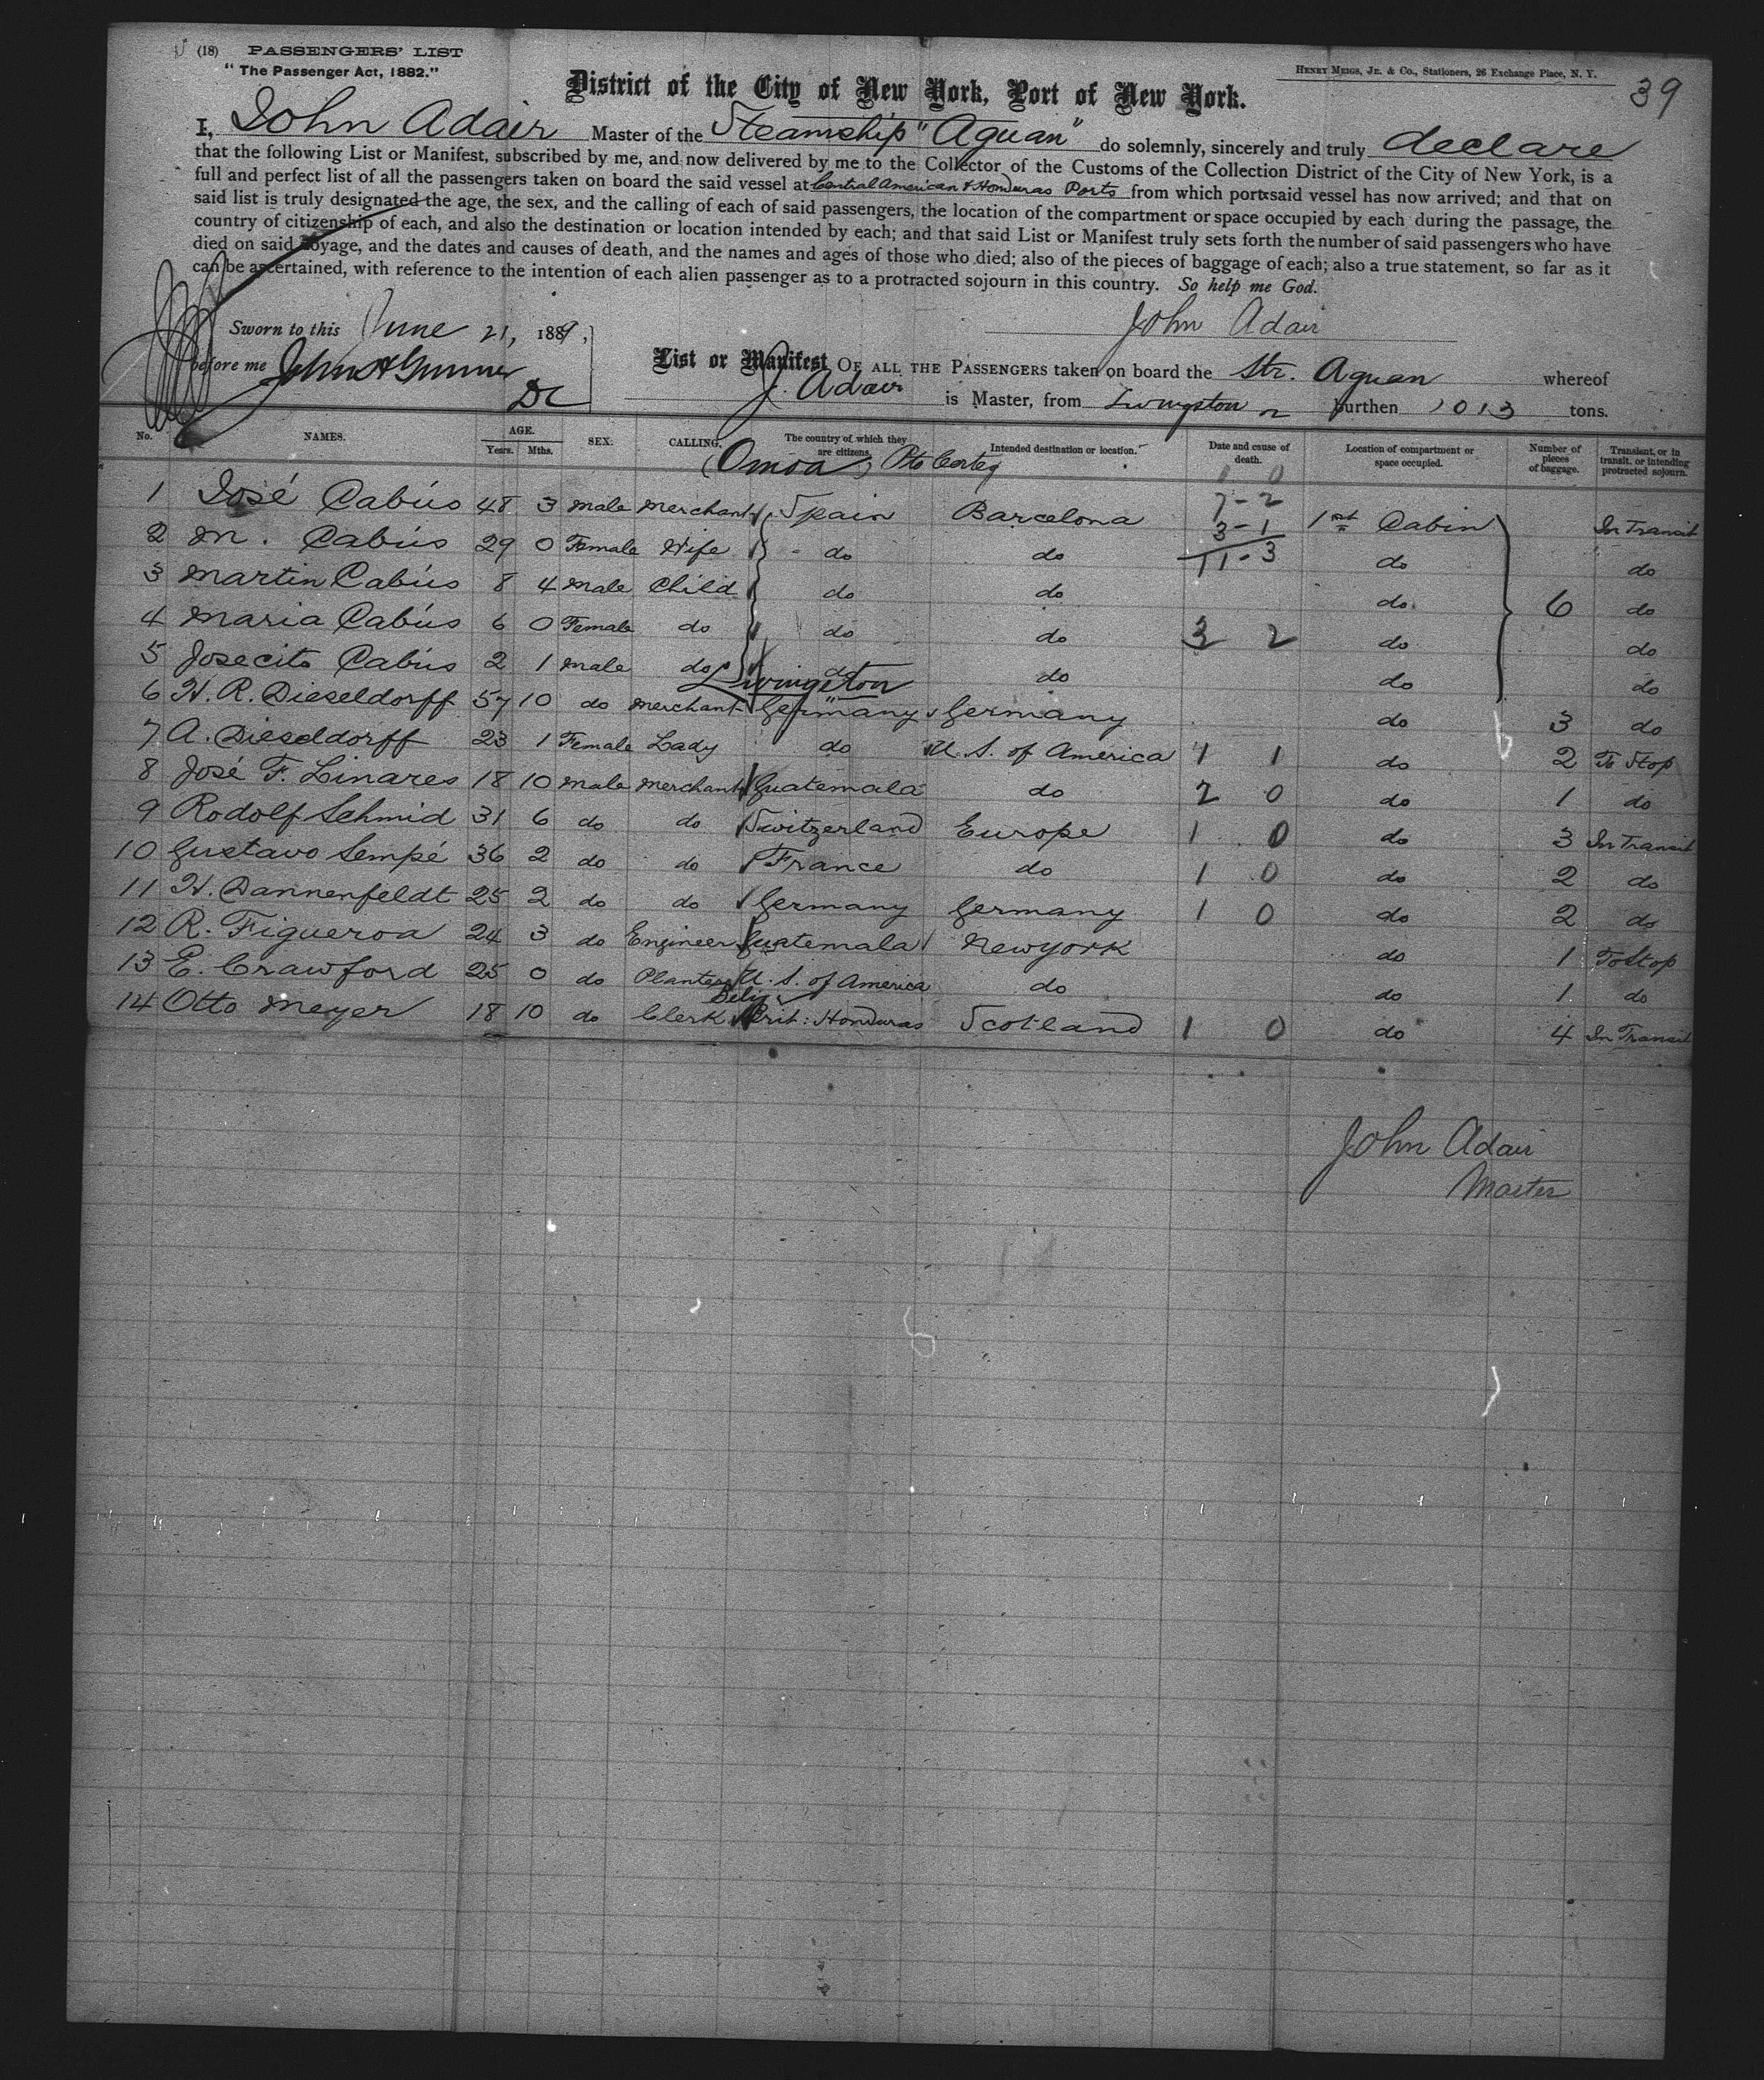 (18) PASSENGERS' LIST
"The Passenger Act, 1882."
HENRY MEIGS, JR. & CO., Stationers, 26 Exchange Place, N. Y.
39
District of the City of New York, Port of New York.
I, John Adair Master of the Steamship "Aguan" do solemnly, sincerely and truly declare
that the following List or Manifest, subscribed by me, and now delivered by me to the Collector of the Customs of the Collection District of the City of New York, is a
full and perfect list of all the passengers taken on board the said vessel at Central American & Honduras Ports from which port said vessel has now arrived; and that on
said list is truly designated the age, the sex, and the calling of each of said passengers, the location of the compartment or space occupied by each during the passage, the
country of citizenship of each, and also the destination or location intended by each; and that said List or Manifest truly sets forth the number of said passengers who have
died on said voyage, and the dates and causes of death, and the names and ages of those who died; also of the pieces of baggage of each; also a true statement, so far as it
can be ascertained, with reference to the intention of each alien passenger as to a protracted sojourn in this country. So help me God.
John Adair
Sworn to this June 21, 1889,
before me John A
DC
List or Manifest OF ALL THE PASSENGERS taken on board the Str. Aguan whereof
J. Adair is Master, from Livingston burthen 1013 tons.
No. NAMES. AGE. Years. Mths. SEX. CALLING. The country of which they are citizens. Intended destination or location. Date and cause of death. Location of compartment or space occupied. Number of pieces of baggage. Transient, or in transit, or intending protracted sojourn.
(Omoa) Pto Cortez
1 José Cabús 48 3 Male Merchant Spain Barcelona 7-2 1st Cabin In Transit
2 M. Cabús 29 0 Female Wife do do 3-1 do do
11-3
3 Martin Cabús 8 4 Male Child do do do 6 do
4 Maria Cabús 6 0 Female do do do 3 2 do do
5 Josecito Cabús 2 1 Male do do do do do
Livingston
6 H. R. Dieseldorff 57 10 do Merchant Germany Germany do 3 do
7 A. Dieseldorff 23 1 Female Lady do U. S. of America 1 1 do 2 To Stop
8 José F. Linares 18 10 Male Merchant Guatemala do 2 0 do 1 do
9 Rodolf Schmid 31 6 do do Switzerland Europe 1 0 do 3 In Transit
10 Gustavo Sempé 36 2 do do France do 1 0 do 2 do
11 H. Dannenfeldt 25 2 do do Germany Germany 1 0 do 2 do
12 R. Figueroa 24 3 do Engineer Guatemala New York do 1 To Stop
13 E. Crawford 25 0 do Planter U. S. of America do do 1 do
14 Otto Meyer 18 10 do Clerk Brit: Honduras Scotland 1 0 do 4 In Transit
John Adair
Master